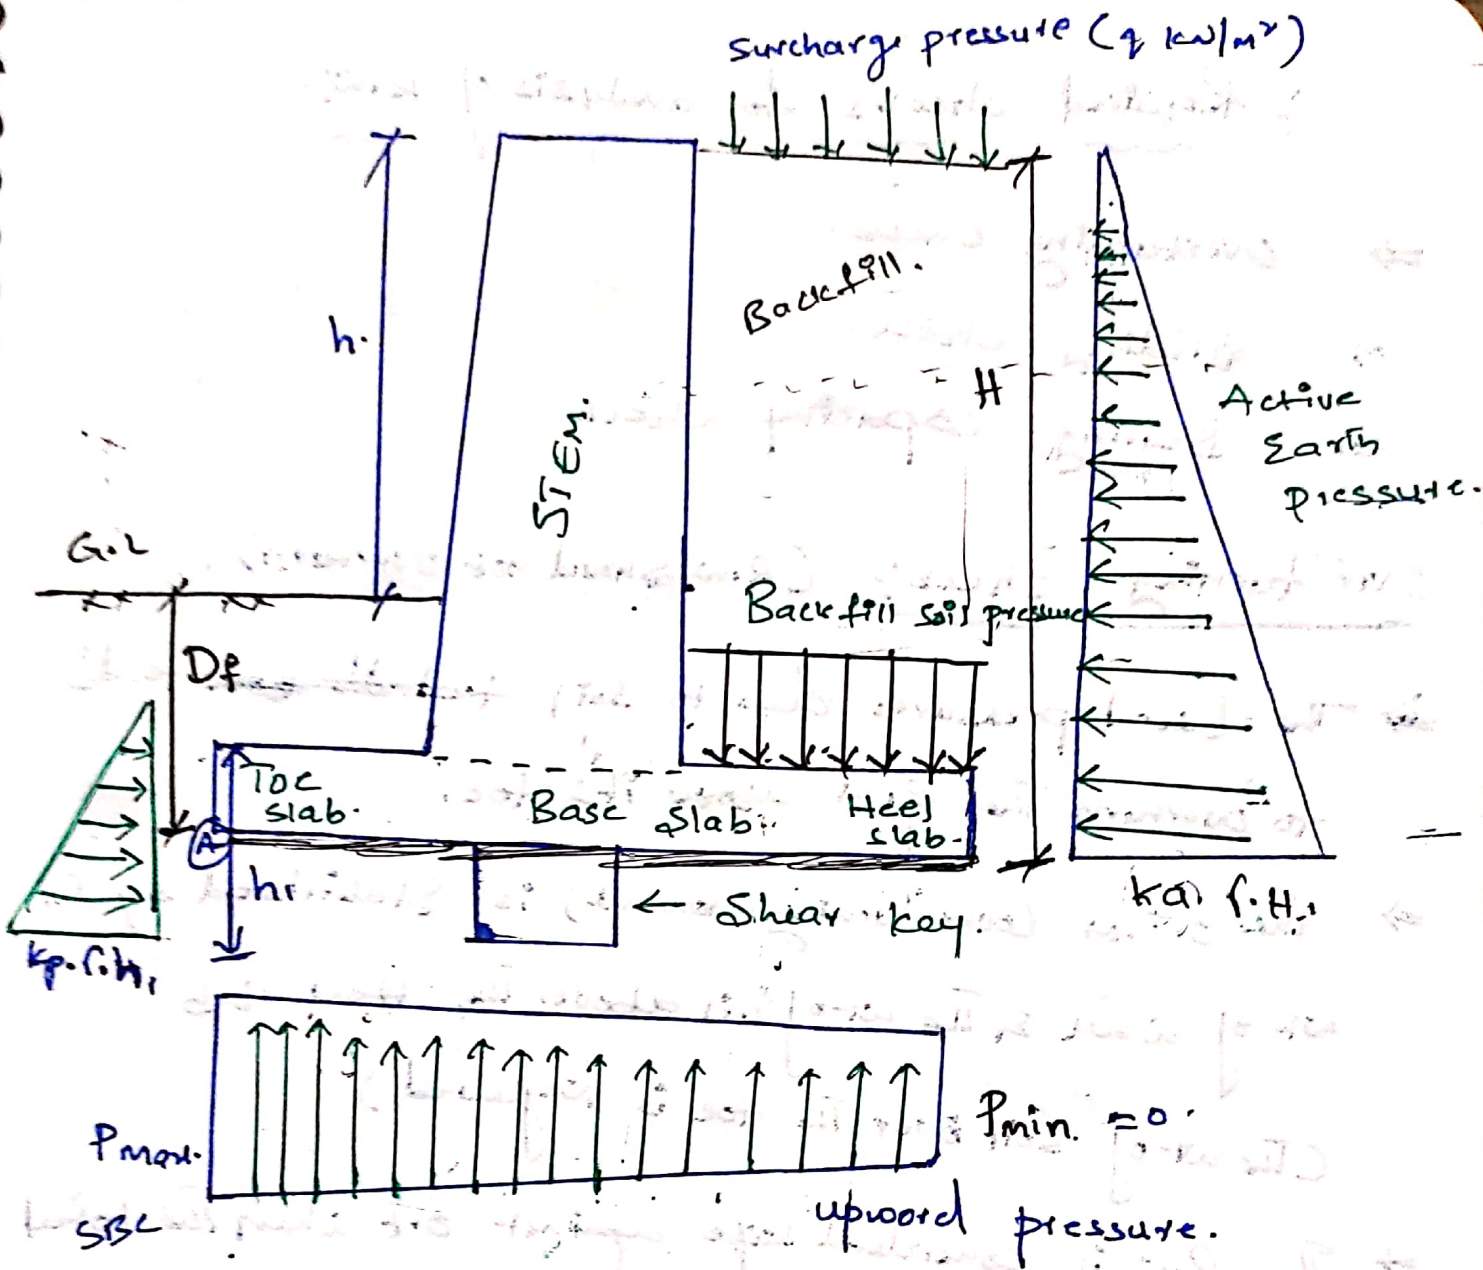 surcharge pressure (q kN/m²)
h.
Backfill.
H
STEM.
Active
Earth
pressure.
G.L
Backfill soil pressure
Df
Toe
slab.
Base slab.
Heel
slab.
A
h1
← Shear key.
ka γ.H.
kp.γ.h1
Pmax.
Pmin. = 0.
SBC
upword pressure.